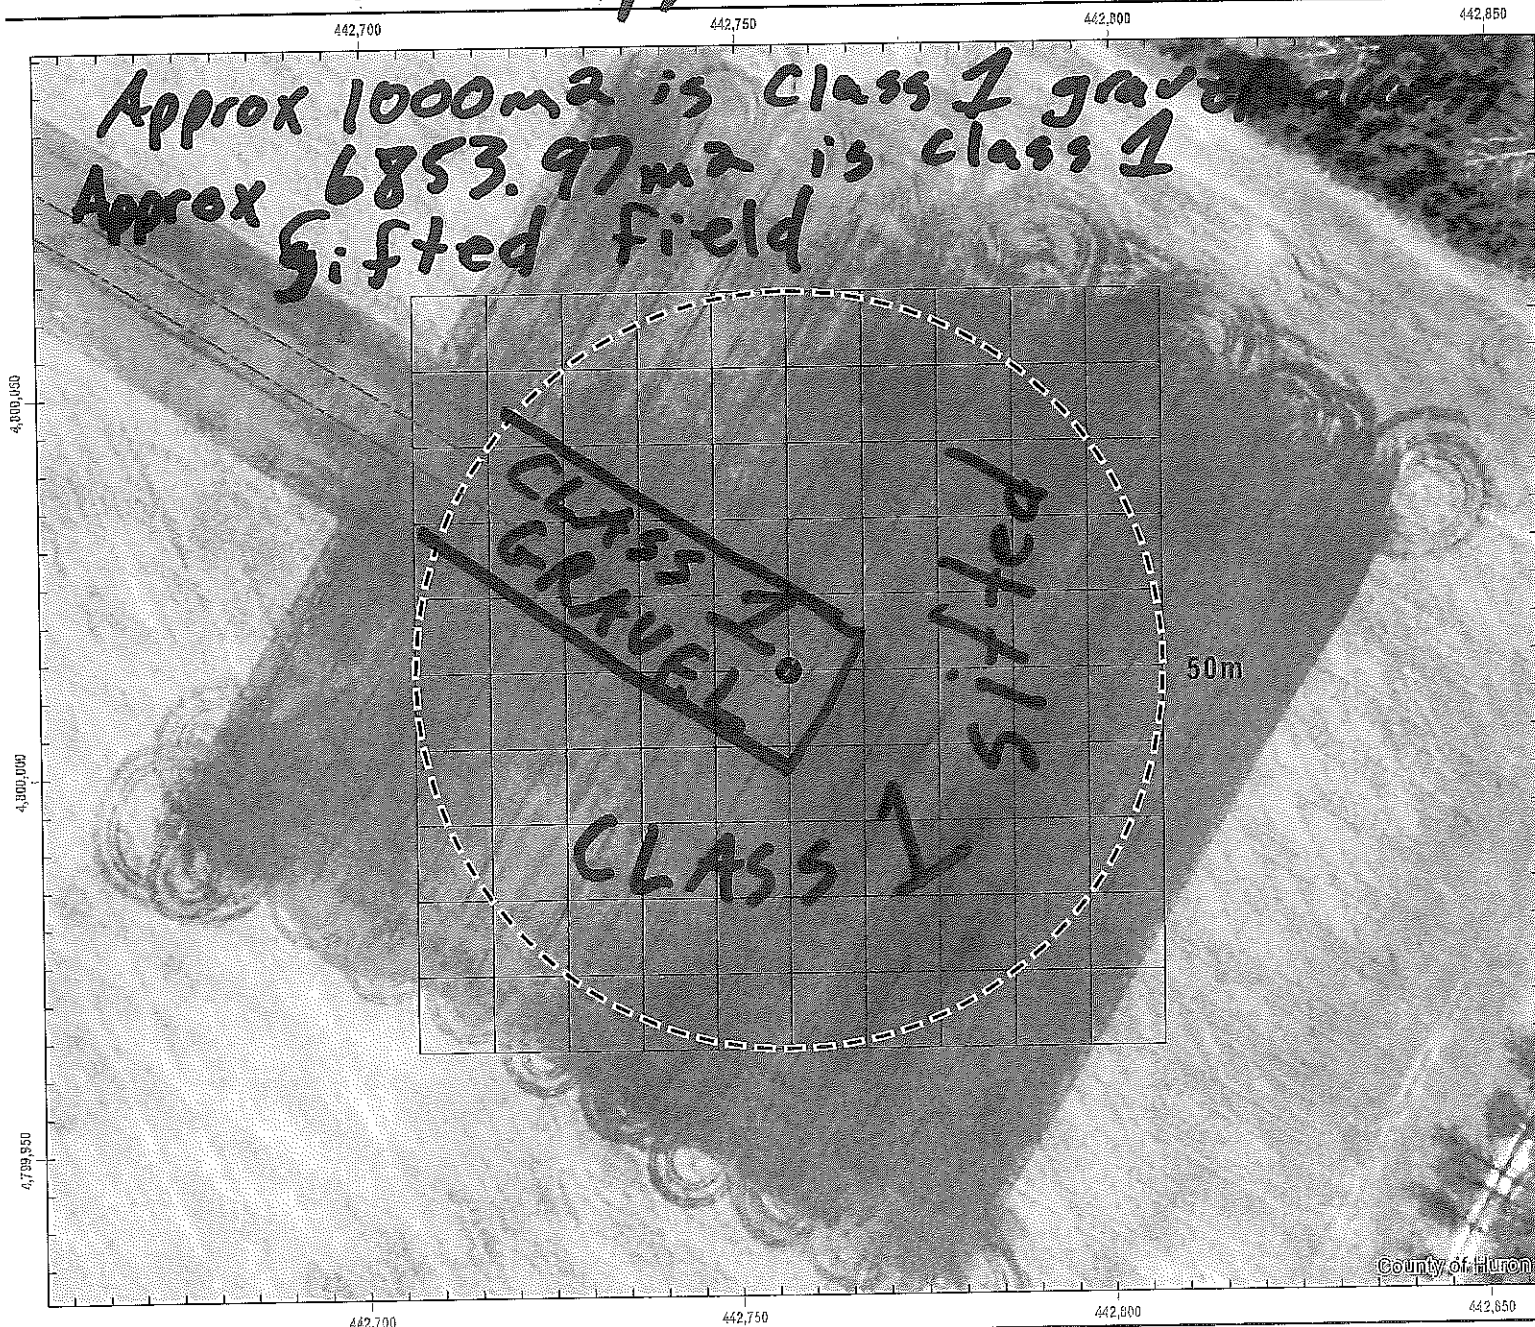 442,700 442,750 442,800 442,850
Approx 1000m2 is Class 1 gravel
Approx 6853.97m2 is class 1
Gifted field
4,800,050
CLASS 1
GRAVEL
sifted
50m
4,800,000
CLASS 1
4,799,950
County of Huron
442,700 442,750 442,800 442,850